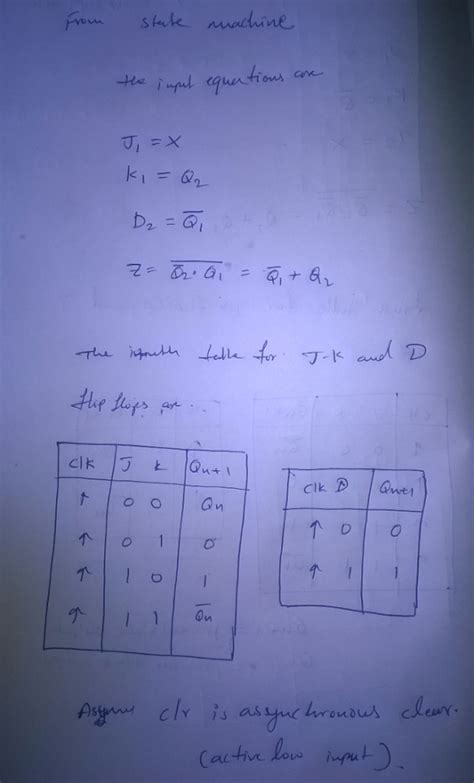 From state machine
the input equations are
J₁ = X
K₁ = Q₂
D₂ = Q̅₁
Z = \overline{Q̅₂ · Q₁} = Q̅₁ + Q₂
The truth table for J-K and D
flip flops are...
clk J K Qn+1
↑ 0 0 Qn
↑ 0 1 0
↑ 1 0 1
↑ 1 1 Q̅n
clk D Qn+1
↑ 0 0
↑ 1 1
Assume clr is assynchronous clear.
(active low input).